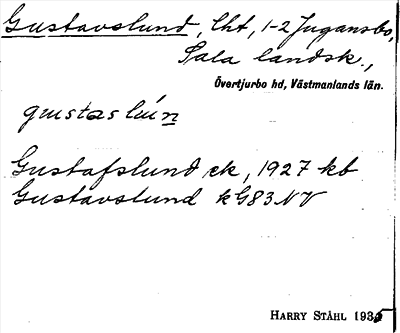 Gustavslund, lht, 1-2 Jugansbo,
Sala landsk.,
Övertjurbo hd, Västmanlands län.
Gustafslund ck, 1927 kb
Gustavslund kG83NV
HARRY STÅHL 193